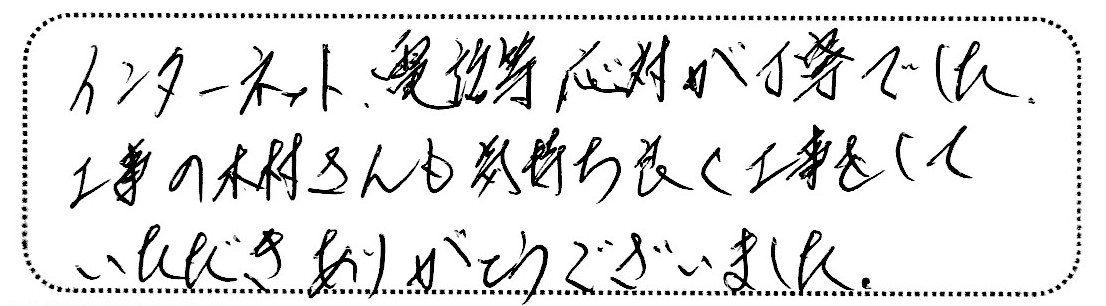 インターネット、電話等応対が丁寧でした。
工事の木村さんも気持ち良く工事をして
いただきありがとうございました。